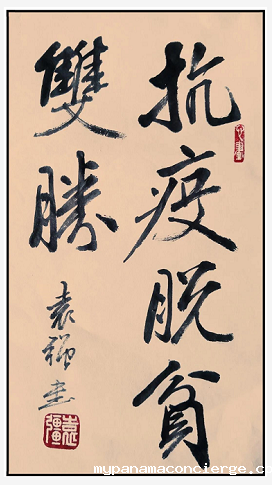 抗疫脱貧
雙勝
袁强書
袁彊
mypanamaconcierge.com